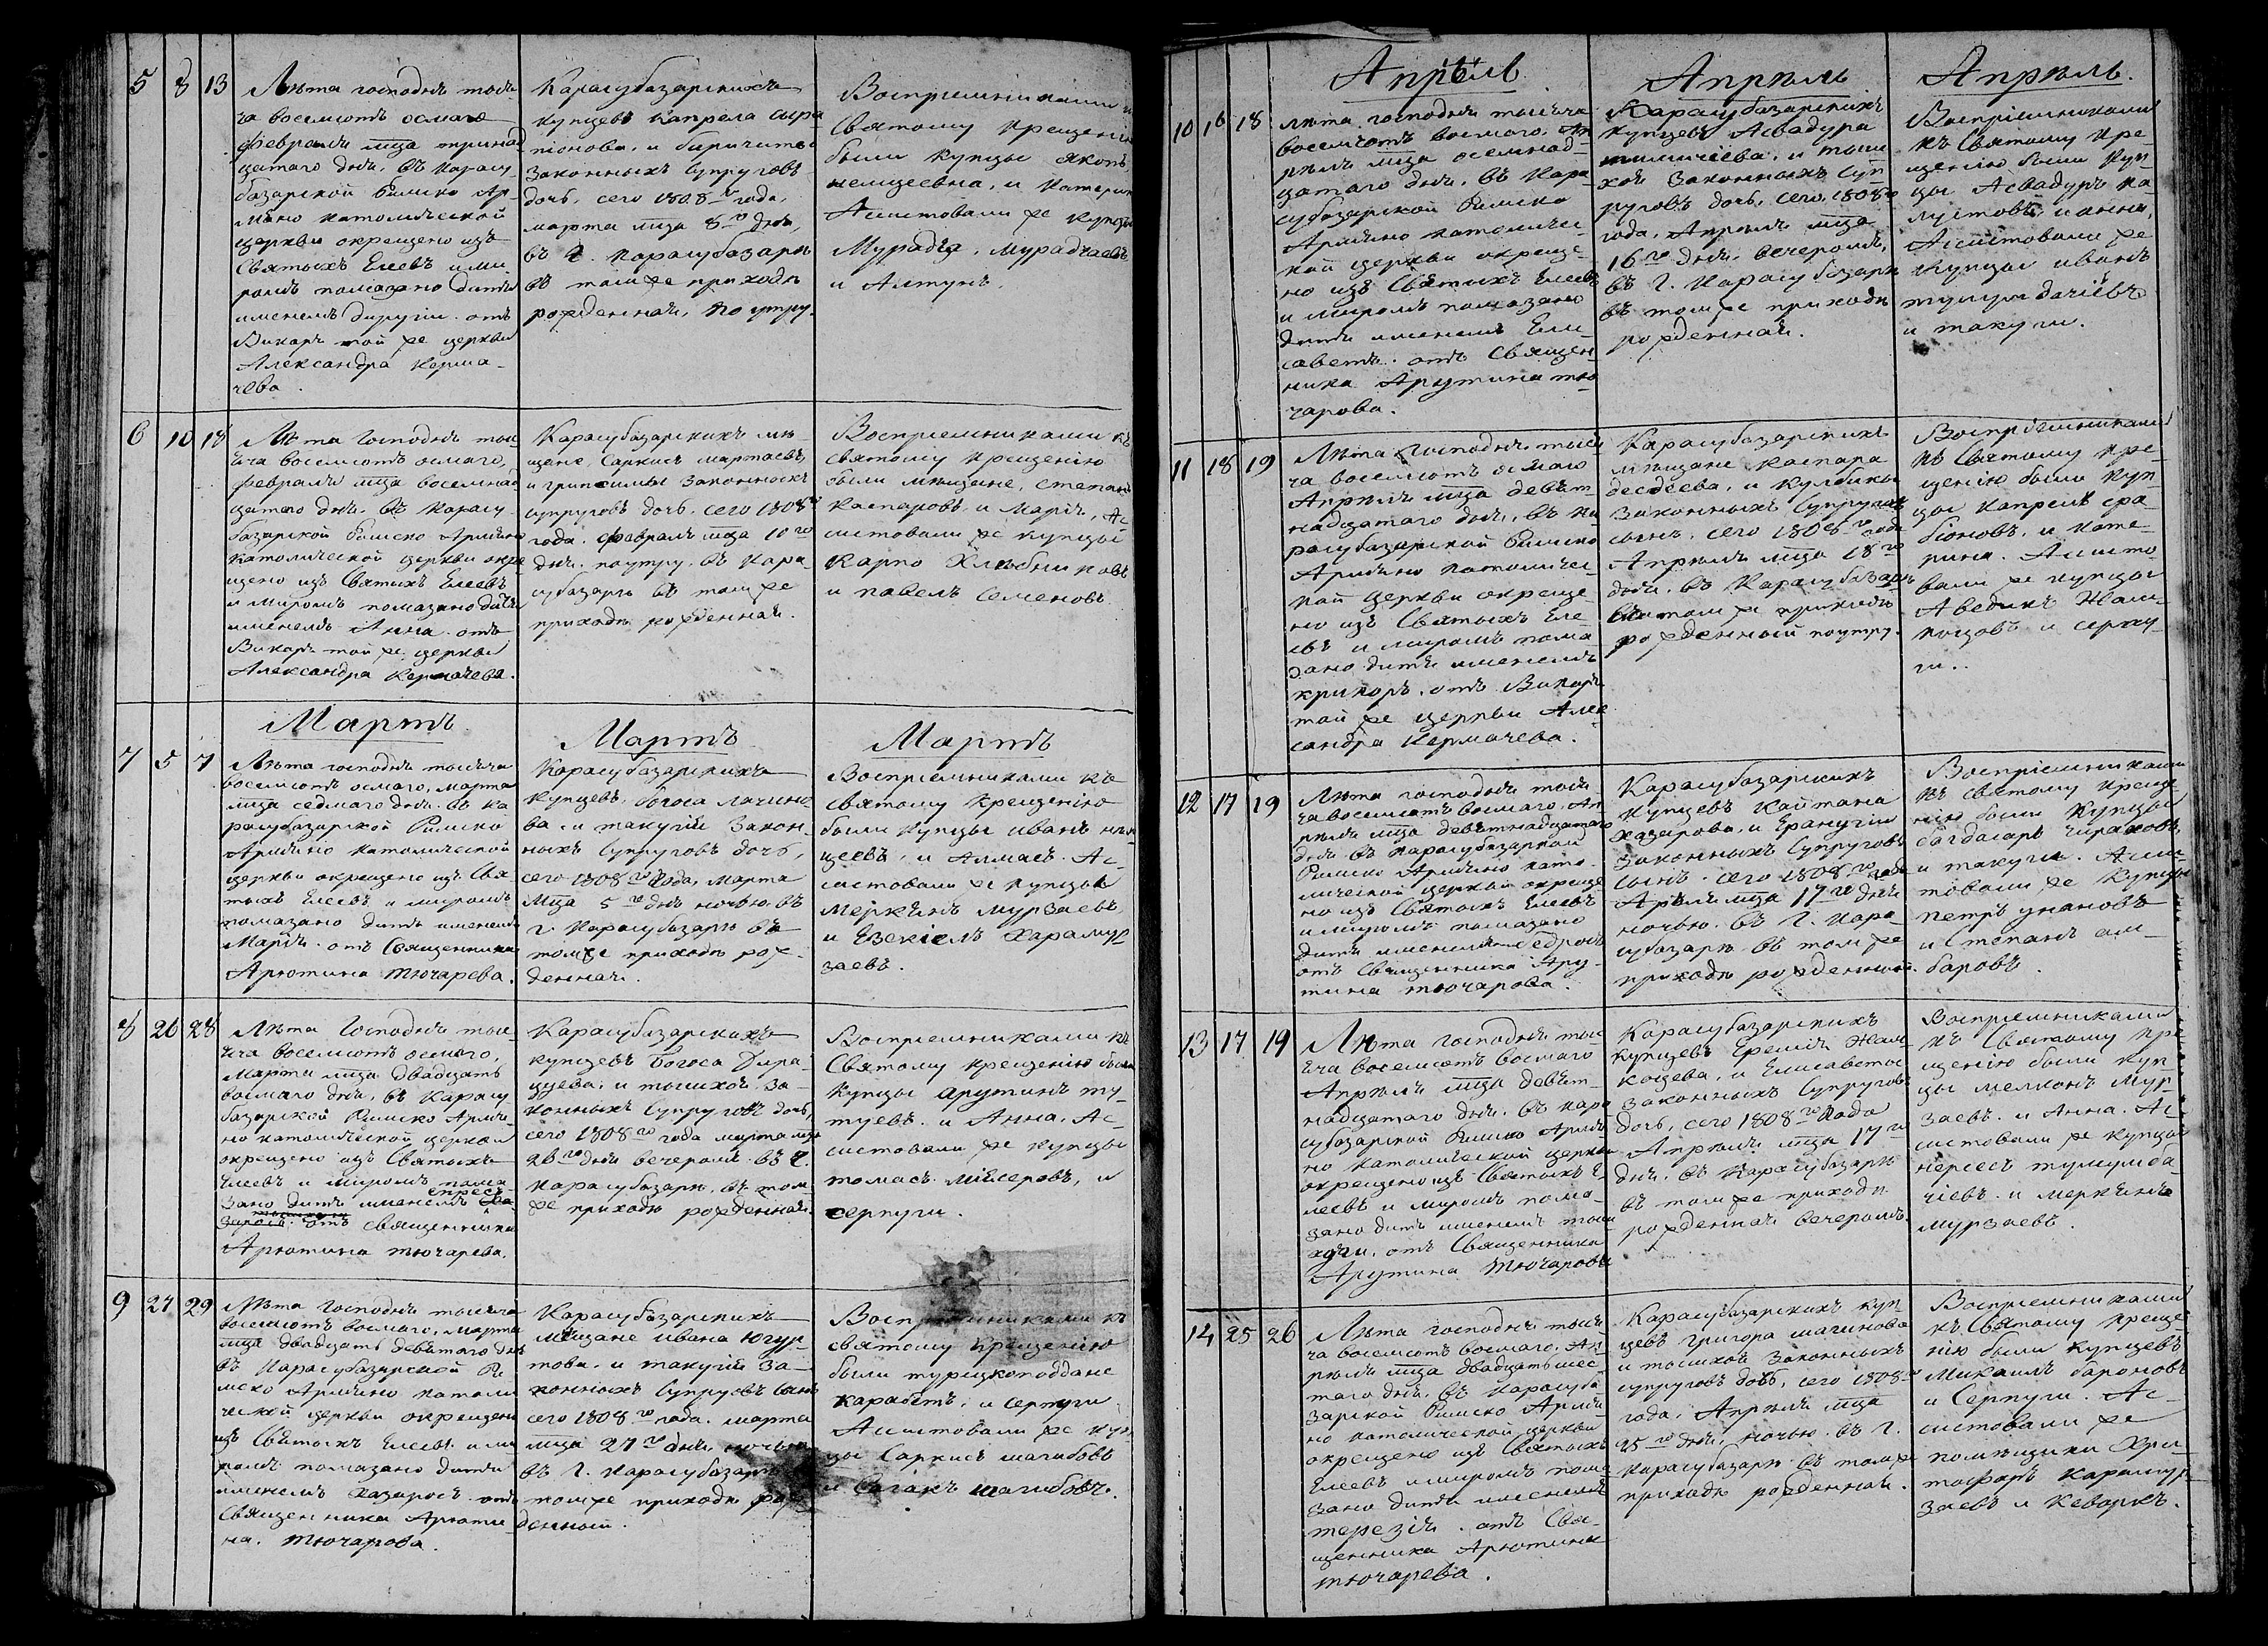 5 8 13
Лѣта господня тыся
ча восемсотъ осмаго
февраля мца тринад
цатаго дня. въ Карасу
базарской Римско Ар
мяно католической
церкви окрещено изъ
Святыхъ Елеевъ и ми
ромъ помазано дитя
именемъ дируги отъ
Викаръ той же церкви
Александра Керма
чева.
Карасубазарскихъ
купцевъ капрела сера
пионова, и
законныхъ супруговъ
дочь, сего 1808го года,
марта мца 8го дня,
въ г. Карасубазарѣ
въ томже приходѣ
рожденная, по утру.
Воспріемниками
Святому крещенію
были купцы якопъ
и катерин
Асистовали же купцы
Мурадча, мурадчаевъ
и Алтунъ.
6 10 18
Лѣта Господня тыс
яча восемсотъ осмаго,
февраля мца восемнад
цатаго дня. въ Карасу
базарской Римско Армяно
католической церкви окре
щено изъ Святыхъ Елеевъ
и миромъ помазано дитя
именемъ Анна отъ
Викаръ той же церкви
Александра Кермачева.
Карасубазарскихъ мѣ
щане, Саркисъ мартаевъ,
и грипсимы законныхъ
супруговъ дочь. сего 1808го
года. февраля мца 10го
дня. поутру. въ Кара
субазарѣ въ томже
приходѣ рожденная.
Воспріемниками къ
святому крещенію
были мѣщане, степанъ
каспаровъ, и Марія, Ас
систовали же купцы
Карпо Хлѣбниковъ
и павелъ Семеновъ.
Мартъ
7 5 7
Лѣта господня тысяча
восемсотъ осмаго, марта
мца седмаго дня. въ ка
расубазарской Римско
Армяно католической
церкви окрещено изъ Свя
тыхъ Елеевъ и миромъ
помазано дитя именемъ
Марія. отъ Священника
Арютина Тючарева.
Мартъ
Карасубазарскихъ
купцевъ, богоса лачино
ва. и такугіи закон
ныхъ супруговъ дочь,
сего 1808го года, марта
мца 5го дня ночью. въ
г. Карасубазарѣ въ
томже приходѣ рож
денная.
Мартъ
Воспріемниками къ
святому крещенію
были купцы иванъ
цеевъ, и Алмасъ. Ас
систовали же купцы
меркинъ мурзаевъ,
и Езекіелъ Харамур
заевъ.
8 26 28
Лѣта Господня тыс
яча восемсотъ осмаго,
марта мца двадцать
восмаго дня, въ Карасу
базарской Римско Армя
но католической церкви
окрещено изъ Святыхъ
Елеевъ и миромъ пома
зано дитя именемъ
отъ священника
Арютина тючарева.
Карасубазарскихъ
купцевъ Богоса Дира
цуева, и тышхои за
конныхъ супруговъ дочь,
сего 1808го года марта мца
26го дня вечеромъ въ г.
Карасубазарѣ, въ том
же приходѣ рожденная.
Воспріемниками къ
Святому крещенію были
Купцы арутинъ ту
туевъ. и Анна. Ас
систовали же купцы
томасъ. мисеровъ, и
серпуги.
9 27 29
Лѣта Господня тысяча
восемсотъ восмаго, марта
мца двадцать девятаго дня
въ Карасубазарской Ри
мско Армяно католи
ческой церкви окрещено
изъ Святыхъ Елеевъ и ми
ромъ помазано дитя
именемъ Хазаросъ отъ
священника Арюти
на. Тючарова.
Карасубазарскихъ
мѣщане ивана югур
това. и такугіи за
конныхъ супруговъ сынъ
сего 1808го года. марта
мца 27го дня, ночью
въ г. Карасубазарѣ
томже приходѣ рож
денный.
Воспріемниками къ
святому крещенію
были турецкоподдане
карабетъ, и серпуги
Асистовали же куп
цы Саркисъ шагибовъ
и Сагакъ шагибовъ.
Апрѣль
10 16 18
лѣта господня тысяча
восемсотъ восмаго, Ап
рѣля мца осемнад
цатаго дня, въ Кара
субазарской Римско
Армяно католичес
кой церкви окреще
но изъ Святыхъ Елеевъ
и миромъ помазано
дитя именемъ Ели
саветъ. отъ Священ
ника Арутина тю
чарова.
Апрѣль
Карасубазарскихъ
купцевъ Асвадура
и тыш
хои законныхъ суп
руговъ дочь, сего, 1808го
года, Апрѣля мца
16го дня, вечеромъ,
въ г. Карасубазарѣ
въ томже приходѣ
рожденная.
Апрѣль.
Воспріемниками
къ Святому кре
щенію были Куп
цы Асвадуръ ка
лустовъ, и анна,
Асистовали же
купцы иванъ
тумулдачіевъ
и такуги.
11 18 19
Лѣта Господня тыся
ча восемсотъ осмаго
Апрѣля мца девят
надцатаго дня, въ ка
расубазарской Римско
Армяно католичес
кой церкви окреще
но изъ Святыхъ Еле
евъ и миромъ пома
зано дитя именемъ
крикоръ. отъ Викаръ
той же церкви Алек
сандра Кермачева.
Карасубазарскихъ
мѣщане каспара
десдеева, и кулбики
законныхъ супруговъ
сынъ. сего 1808го года
Апрѣля мца 18го
дня, въ Карасубазарѣ
въ томже приходѣ
рожденный поутру.
Воспріемниками
къ Святому кре
щенію были куп
цы капрелъ сра
біоновъ, и кате
рина. Асисто
вали же купцы
Аведикъ Жам
коцовъ и серпу
ги.
12 17 19
Лѣта господня тыся
ча восемсотъ восмаго, Ап
рѣля мца девятнадцатаго
дня въ Карасубазарской
Римско Армяно като
лической церкви окреще
но изъ Святыхъ Елеевъ
и миромъ помазано
дитя именемъ бедросъ
отъ Священника Ару
тина тючарова.
Карасубазарскихъ
купцевъ Кайтана
хазарова, и Ерангугіи
законныхъ супруговъ
сынъ. сего 1808го года
Апрѣля мца 17го дня
ночью. въ г. Кара
субазарѣ. въ томже
приходѣ рожденный.
Воспріемниками
къ святому креще
нію были Купцы
багдасаръ чираховъ,
и такуги. Асис
товали же купцы
петръ унановъ
и Степанъ ам
баровъ.
13 17 19
Лѣта господня тыс
яча восемсотъ восмаго
Апрѣля мца девят
надцатаго дня. въ кара
субазарской Римско Армя
но католической церкви
окрещено изъ Святыхъ Е
леевъ и миромъ пома
зано дитя именемъ тыш
хучи. отъ Священника
Арутина Тючарова
Карасубазарскихъ
купцевъ Еремія Жам
коцева, и Елисаветы
законныхъ супруговъ
дочь, сего 1808го года
Апрѣля мца 17го
дня. въ Карасубазарѣ
въ томже приходѣ
рожденная вечеромъ.
Воспріемниками
къ Святому кре
щенію были куп
цы мелконъ мур
заевъ. и Анна. Ас
систовали же купцы
нересъ тумулба
чіевъ. и меркинъ
мурзаевъ.
14 25 26
Лѣта господня тыся
ча восемсотъ восмаго. Ап
рѣля мца двадцать шес
таго дня. въ Карасуба
зарской Римско Армя
но католической церкви
окрещено изъ Святыхъ
Елеевъ и миромъ пома
зано дитя именемъ
терезія. отъ Свя
щенника Арютина
тючарева.
Карасубазарскихъ куп
цевъ григора шагинова
и тышхои законныхъ
супруговъ дочь, сего 1808го
года, Апрѣля мца
25го дня, ночью. въ г.
Карасубазарѣ въ томже
приходѣ рожденная.
Воспріемниками
къ Святому креще
нію были купцевъ
Микаилъ бароновъ
и Серпуги. Ас
систовали же
помѣщики Хри
тофоръ Карамур
заевъ и Кеворкъ.